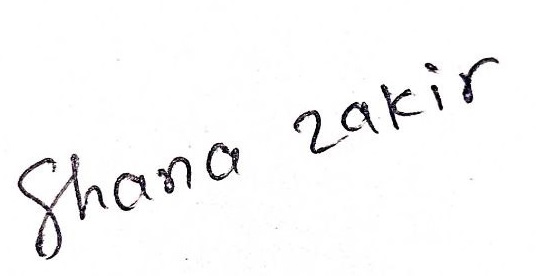 Shana zakir